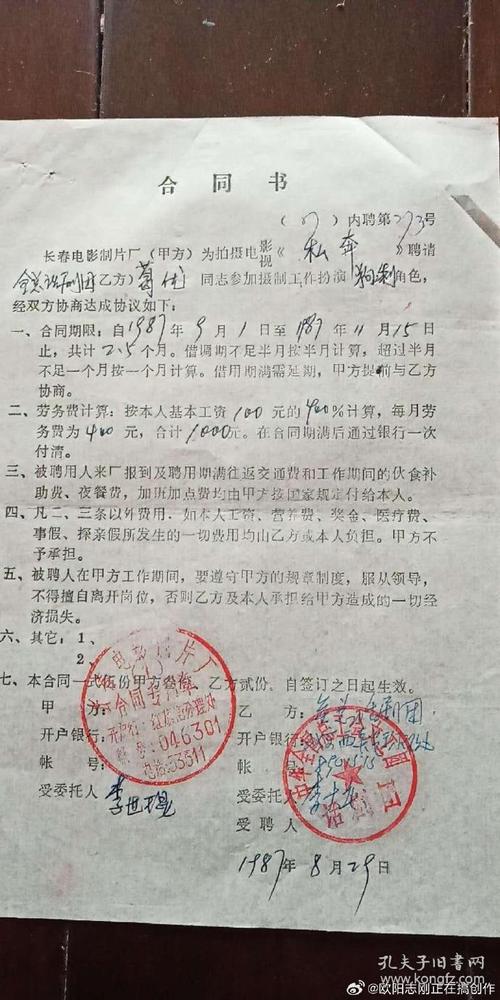 合同书
(87)内聘第273号
长春电影制片厂(甲方)为拍摄电影视《私奔》聘请
全总话剧团(乙方)葛优同志参加摄制工作扮演角色,
经双方协商达成协议如下:
一、合同期限:自1987年9月1日至1987年11月15日
止,共计2.5个月。借调期不足半月按半月计算,超过半月
不足一个月按一个月计算。借用期满需延期,甲方提前与乙方
协商。
二、劳务费计算:按本人基本工资100元的400%计算,每月劳
务费为400元,合计1000元。在合同期满后通过银行一次
付清。
三、被聘用人来厂报到及聘用期满往返交通费和工作期间的伙食补
助费、夜餐费,加班加点费均由甲方按国家规定付给本人。
四、凡二、三条以外费用,如本人工资、营养费、奖金、医疗费、
事假、探亲假所发生的一切费用均由乙方或本人负担。甲方不
予承担。
五、被聘人在甲方工作期间,要遵守甲方的规章制度,服从领导,
不得擅自离开岗位,否则乙方及本人承担给甲方造成的一切经
济损失。
六、其它:1、
2、
七、本合同一式伍份甲方叁份,乙方贰份,自签订之日起生效。
甲方:
开户银行:
帐号:
受委托人
长春电影制片厂
合同专用章
046301
电话:53311
乙方:全总话剧团
开户银行:
帐号:
受委托人
受聘人
1987年8月29日
孔夫子旧书网
www.kongfz.com
@欧阳志刚正在搞创作